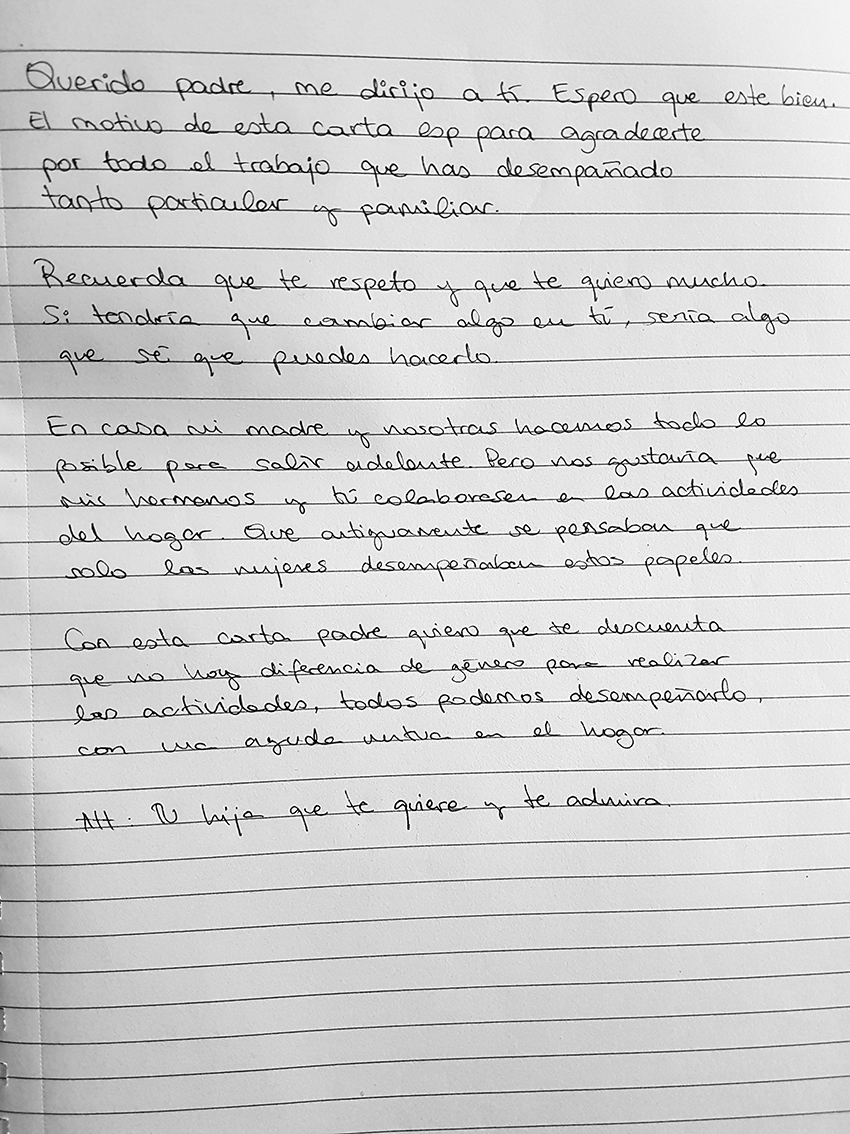 Querido padre, me dirijo a tí. Espero que este bien.
El motivo de esta carta esp para agradecerte
por todo el trabajo que has desempañado
tanto particular y familiar.
Recuerda que te respeto y que te quiero mucho.
Si tendría que cambiar algo en tí, sería algo
que sé que puedes hacerlo.
En casa mi madre y nosotras hacemos todo lo
posible para salir adelante. Pero nos gustaría que
mis hermanos y tú colaborasen en las actividades
del hogar. Que antiguamente se pensaban que
solo las mujeres desempeñaban estos papeles.
Con esta carta padre quiero que te descuenta
que no hay diferencia de género para realizar
las actividades, todos podemos desempeñarlo,
con una ayuda mutua en el hogar.
Att: Tu hija que te quiere y te admira.